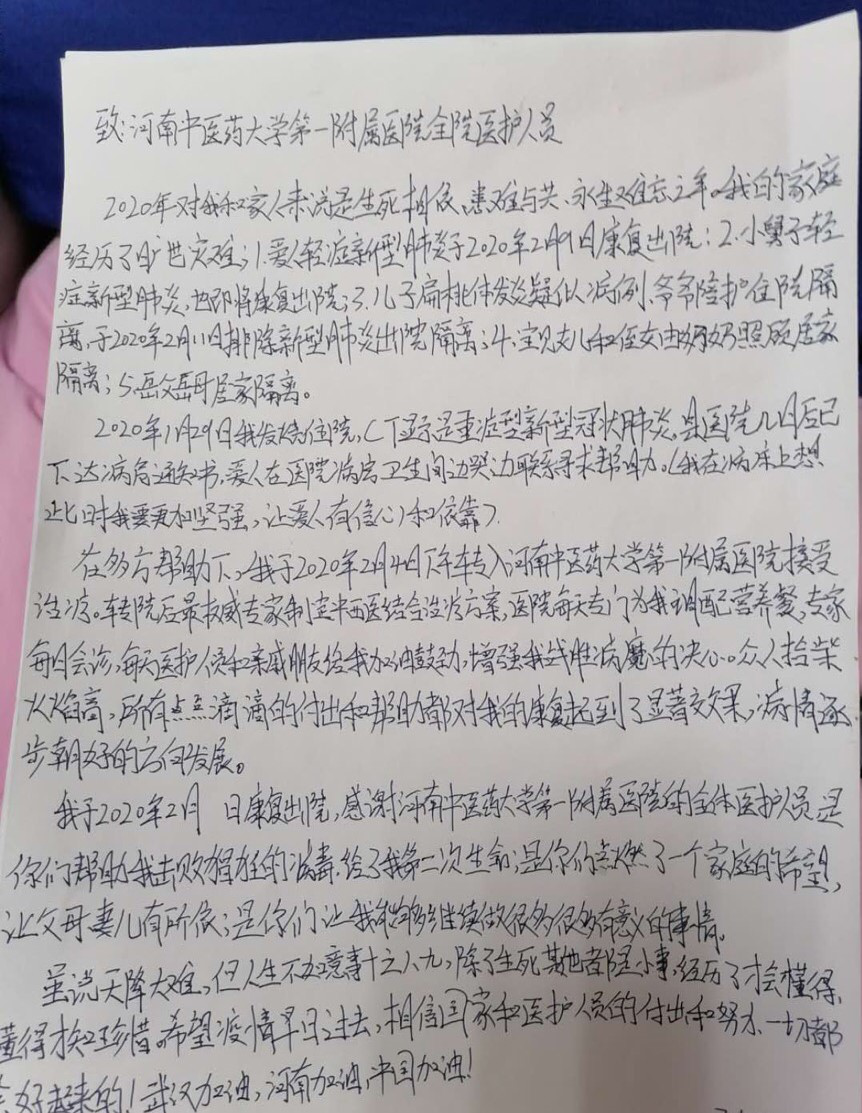 致:河南中医药大学第一附属医院全院医护人员
2020年对我和家人来说是生死相依、患难与共、永生难忘之年。我的家庭
经历了灾难;1.爱人轻症新型肺炎于2020年2月9日康复出院;2.小舅子轻
症新型肺炎,也即将康复出院;3.儿子扁桃体发炎疑似病例,爷爷陪护住院隔
离,于2020年2月11日排除新型肺炎出院隔离;4.宝贝女儿和侄女由奶奶照顾,居家
隔离;5.岳父岳母居家隔离。
2020年1月29日我发烧住院,CT显示是重症型新型冠状肺炎,县医院几日后已
下达病危通知书,爱人在医院病房卫生间边哭边联系寻求帮助。(我在病床上想
此时我要更加坚强,让爱人有信心和依靠)。
在多方帮助下,我于2020年2月4日下午转入河南中医药大学第一附属医院接受
治疗。转院后最权威专家制定中西医结合治疗方案,医院每天专门为我调配营养餐,专家
每日会诊,每天医护人员和亲戚朋友给我加油鼓劲,增强我战胜病魔的决心。众人拾柴
火焰高,所有点点滴滴的付出和帮助都对我的康复起到了显著效果,病情逐
步朝好的方向发展。
我于2020年2月 日康复出院,感谢河南中医药大学第一附属医院的全体医护人员,是
你们帮助我击败猖狂的病毒,给了我第二次生命;是你们点燃了一个家庭的希望,
让父母妻儿有所依;是你们让我能够继续做很多很多有意义的事情。
虽说天降大难,但人生不如意事十之八九,除了生死其他都是小事,经历了才会懂得,
懂得才知珍惜。希望疫情早日过去,相信国家和医护人员的付出和努力,一切都
会好起来的!武汉加油,河南加油,中国加油!